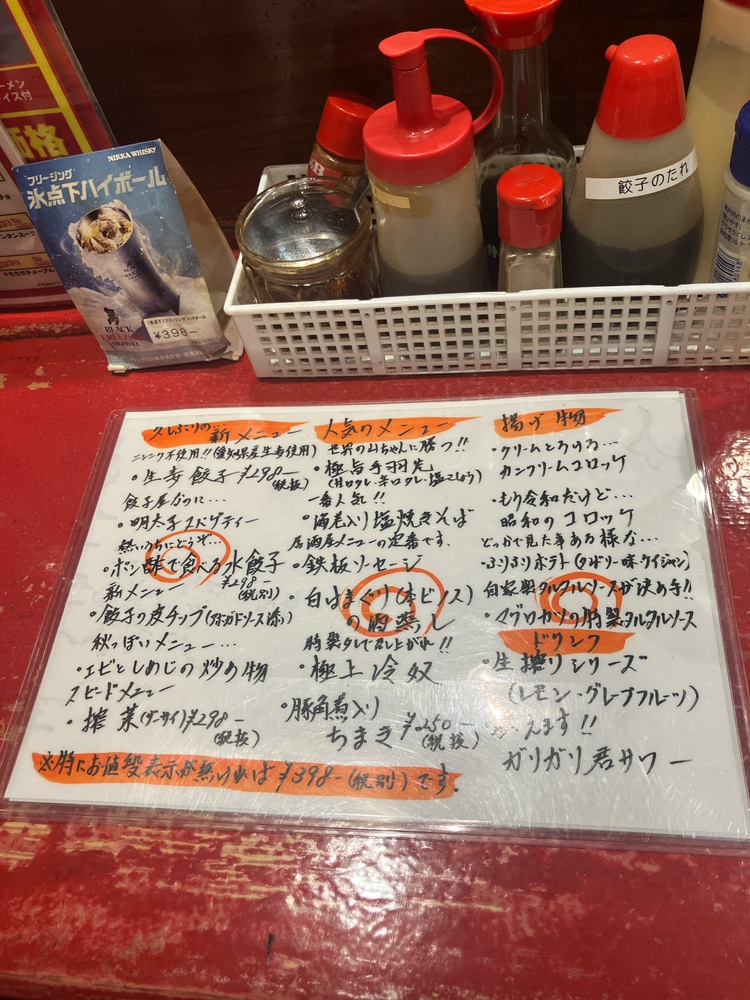 メン
イス付
価格
NIKKA WHISKY
フリージング
氷点下ハイボール
BLACK
氷点下フリージングハイボール
¥398-
餃子のたれ
久しぶりの…
新メニュー
ニンニク不使用!!(愛知県産生姜使用)
・生姜餃子¥298-
(税抜)
餃子屋なのに…
・明太子スパゲティー
熱いうちにどうぞ…
・ポン酢で食べる水餃子
¥298-
(税別)
新メニュー
・餃子の皮チップ(アボガドソース添)
秋っぽいメニュー…
・エビとしめじの炒め物
スピードメニュー
・搾菜(ザーサイ)¥298-
(税抜)
人気のメニュー
世界の山ちゃんに勝つ!!
・極旨手羽先
(甘口タレ・辛口タレ・塩こしょう)
一番人気!!
・海老入り塩焼きそば
居酒屋メニューの定番です.
・鉄板ソーセージ
・白はまぐり(本ビノス)
の酒蒸し
特製タレで召し上がれ!!
・極上冷奴
・豚角煮入り
ちまき ¥250-
(税抜)
揚げ物
・クリームとろける…
カンクリームコロッケ
・もう令和だけど…
昭和のコロッケ
どっかで見た事ある様な…
・ふりふりポテト(タンドリー味・ケイジャン)
自家製タルタルソースが決め手!!
・マグロカツの特製タルタルソース
ドリンク
・生搾りシリーズ
(レモン・グレープフルーツ)
えます!!
ガリガリ君サワー
※特にお値段表示が無ければ¥398-(税別)です.